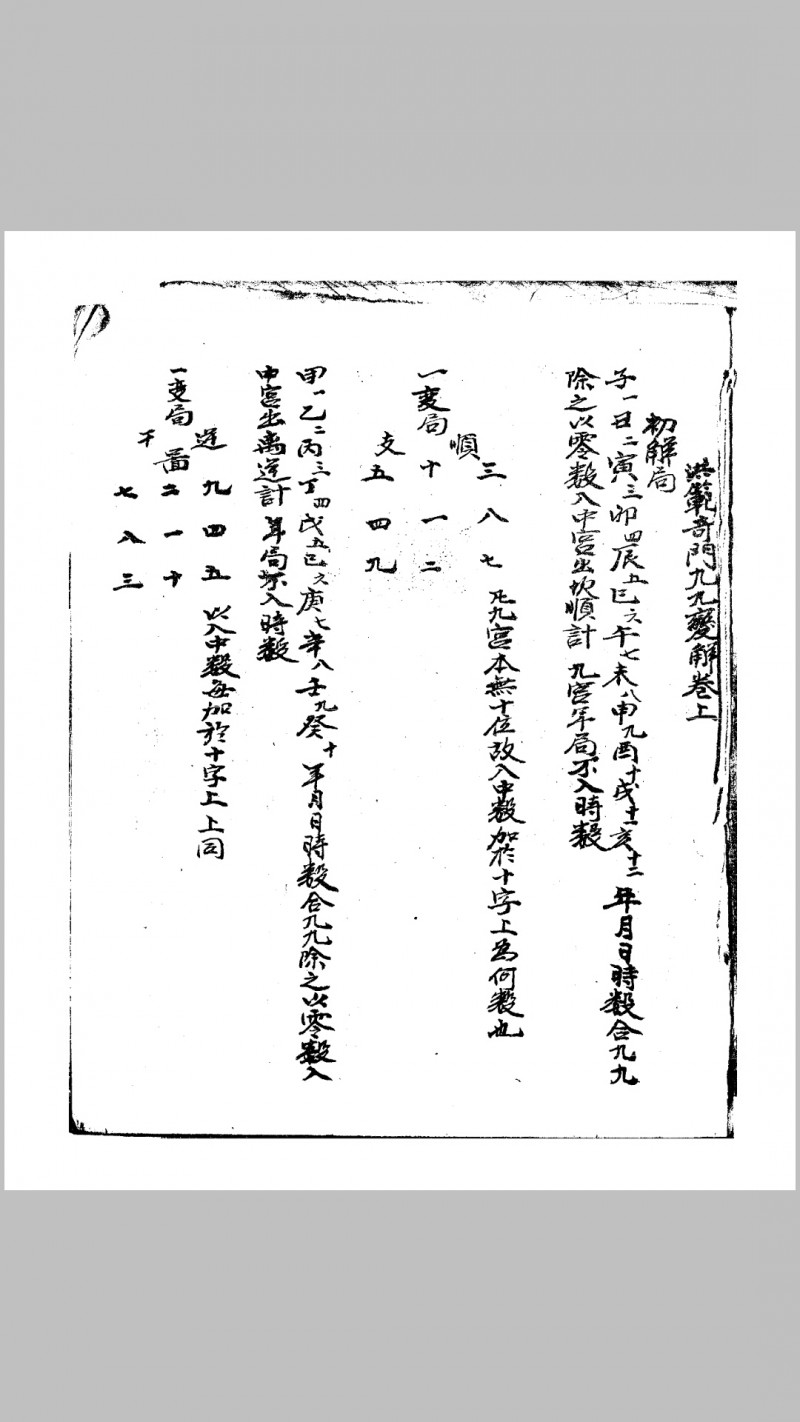 洪範奇門九九變解卷上
初解局
子一丑二寅三卯四辰五巳六午七未八申九酉十戌十一亥十二 年月日時數合九九
除之以零數入中宮出坎順計 九宮年局不入時數
順
三 八 七 凡九宮本無十位故入中數加於十字上為何數也
一變局 十 一 二
支 五 四 九
甲一乙二丙三丁四戊五己六庚七辛八壬九癸十 年月日時數合九九除之以零數入
中宮出离逆計 年局不入時數
逆 九 四 五 以入中數每加於十字上 上同
一变局 圖 二 一 十
干 七 八 三